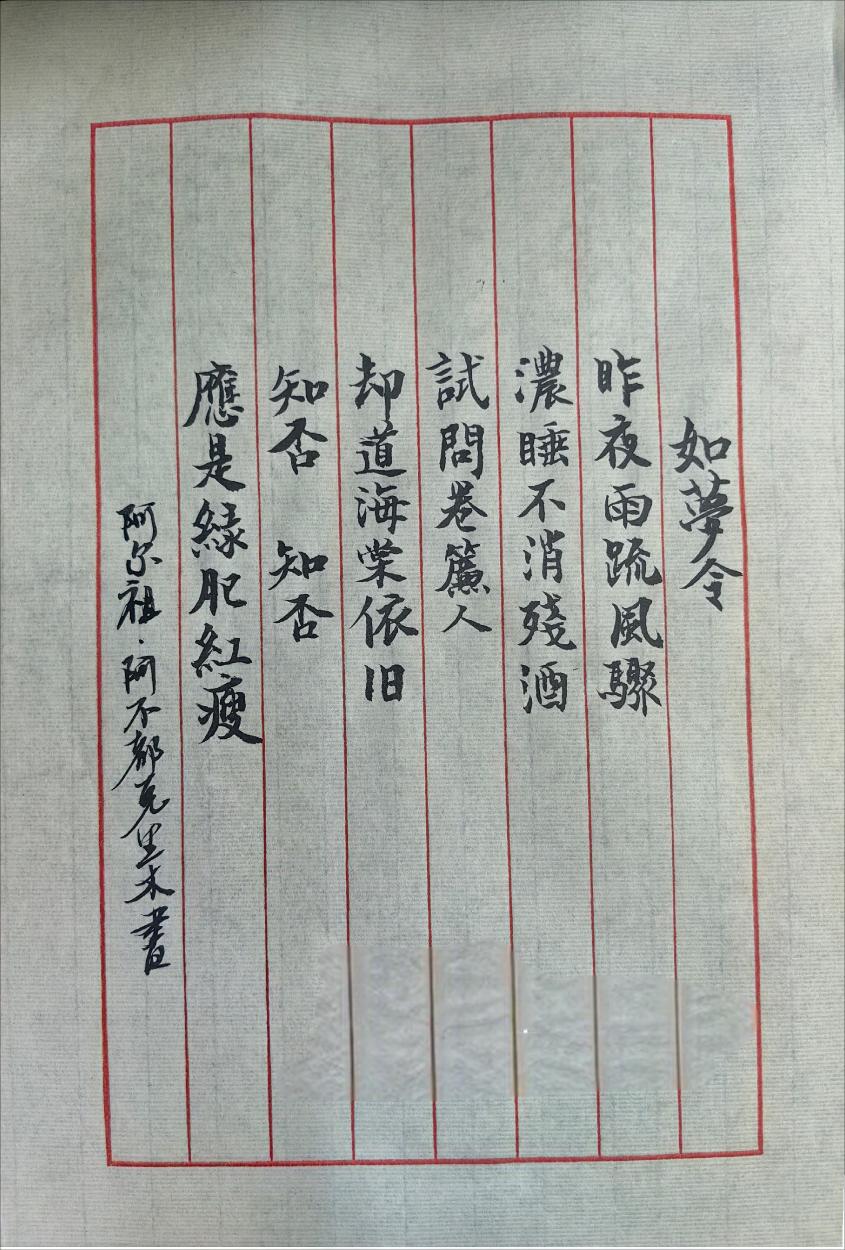 如夢令
昨夜雨疏風驟
濃睡不消殘酒
試問卷簾人
却道海棠依旧
知否 知否
應是緑肥紅瘦
阿尔祖·阿不都克里木書